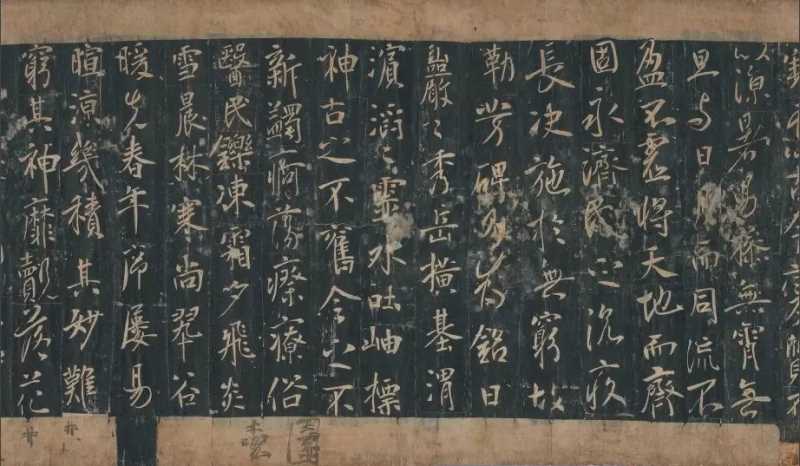 以涼暑易操無霄無
旦与日月而同流不
盈不虛將天地而齊
固永濟民之沉疾
長決施於無窮故
勒芳碑乃為銘曰
巖々秀岳橫基渭
濱滔々靈水吐岫標
神古之不舊今之不
新蠲痾蕩瘵療俗
醫民鑠凍霜夕飛炎
雪晨林寒尚翠谷
暖先春年序屢易
暄涼幾積其妙難
窮其神靡覿落花